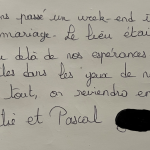 ons passé un week-end i
mariage. Le lieu étai
u delà de nos espérances
les dans les yeux de n
tout, on reviendra en
lie et Pascal